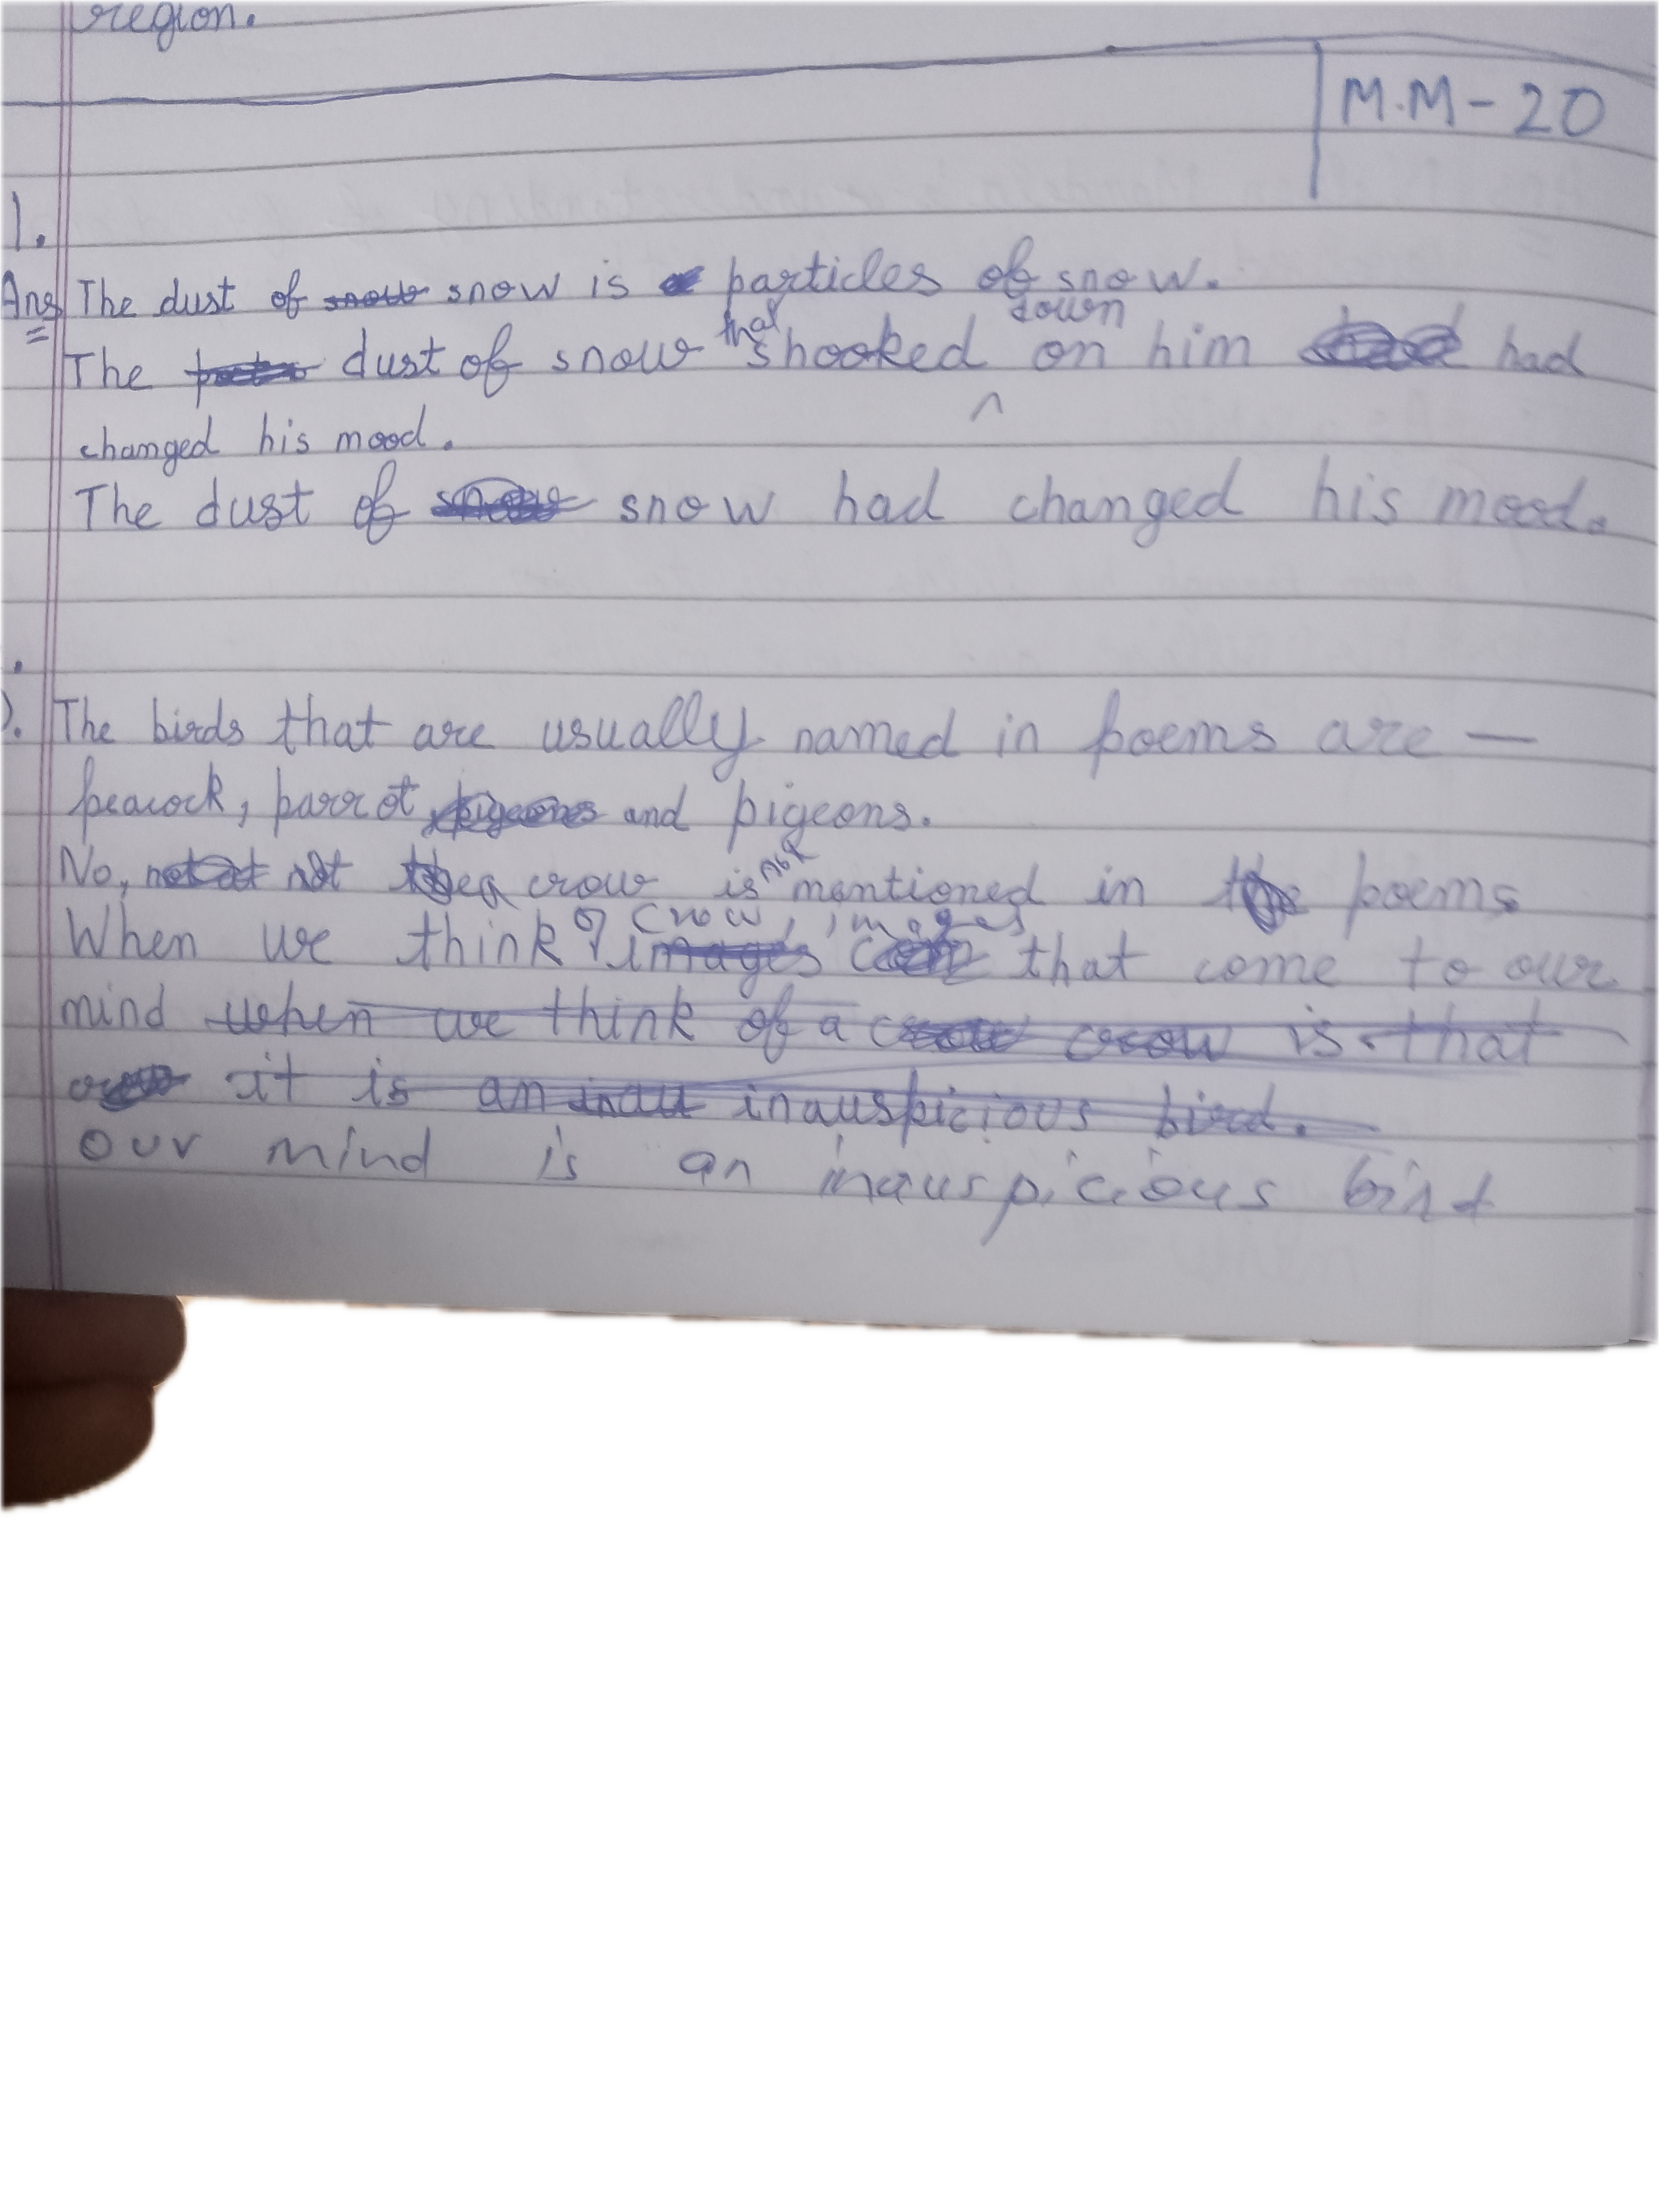 region.
M.M-20
1.
Ans The dust of snow is particles of snow.
The dust of snow that shooked down on him had
changed his mood.
The dust of snow had changed his mood.
). The birds that are usually named in poems are —
peacock, parrot and pigeons.
No, not a crow is not mentioned in poems
When we think of crow, images that come to our
mind when we think of a crow is that
it is an inauspicious bird.
our mind is an inauspicious bird